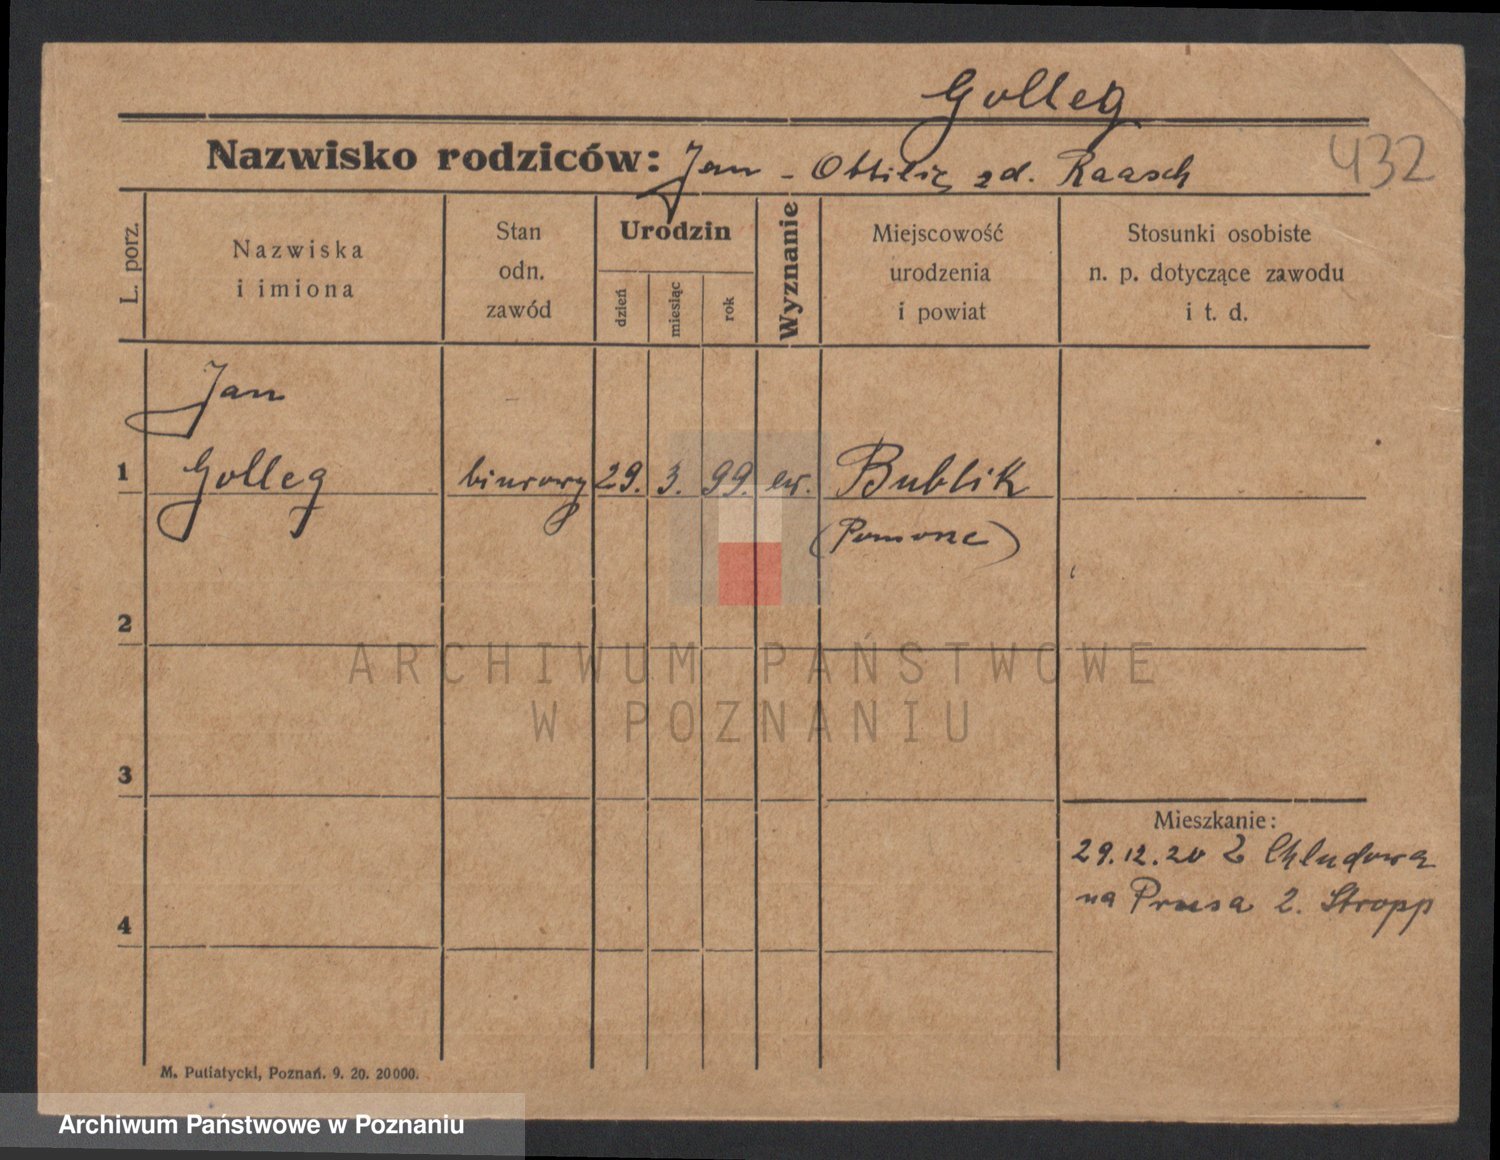 Golleg
432
Nazwisko rodziców: Jan - Ottilie zd. Raasch
L. porz.
Nazwiska
i imiona
Stan
odn.
zawód
Urodzin
dzień
miesiąc
rok
Wyznanie
Miejscowość
urodzenia
i powiat
Stosunki osobiste
n. p. dotyczące zawodu
i t. d.
Jan
1 Golleg biurowy 29. 3. 99. ew. Bublik
(Pomorze)
2
ARCHIWUM PAŃSTWOWE
W POZNANIU
3
Mieszkanie:
29.12.20 Z Chludowa
4 na Prusa 2. Stropp
M. Putiatycki, Poznań. 9. 20. 20000.
Archiwum Państwowe w Poznaniu